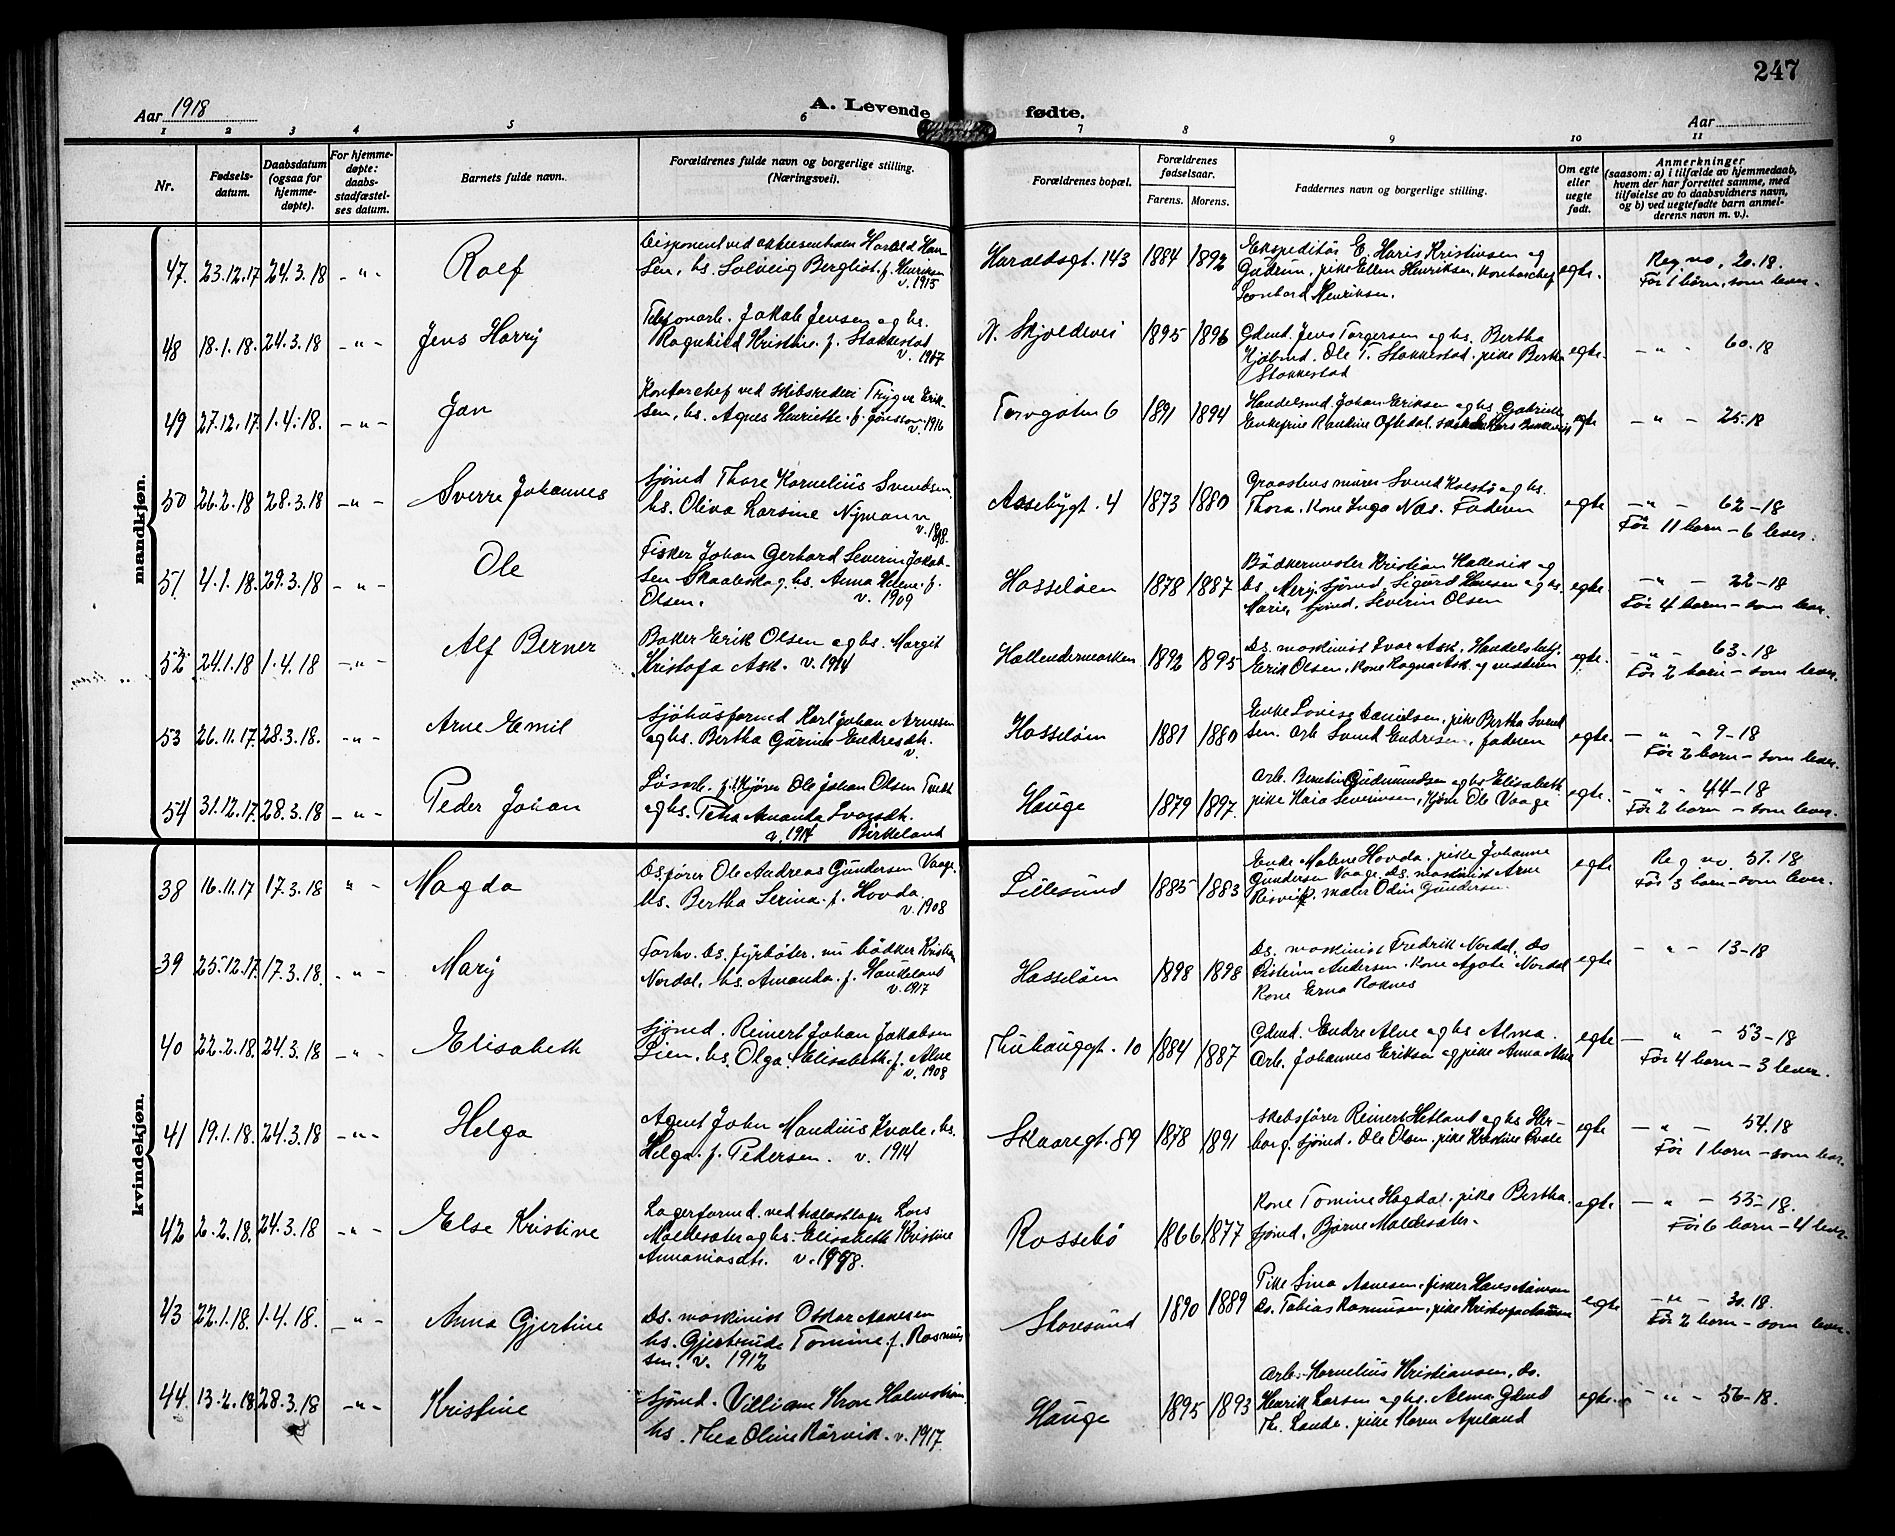 247
Aar 1918
A. Levende fødte.
Aar
1 2 3 4 5 6 7 8 9 10 11
Nr.
Fødsels-
datum.
Daabsdatum
(ogsaa for
hjemme-
døpte).
For hjemme-
døpte:
daabs-
stadfæstel-
ses datum.
Barnets fulde navn.
Forældrenes fulde navn og borgerlige stilling.
(Næringsvei).
Forældrenes bopæl.
Forældrenes
fødselsaar.
Farens. Morens.
Faddernes navn og borgerlige stilling.
Om egte
eller
uegte
født.
Anmerkninger
(saasom: a) i tilfælde av hjemmedaab,
hvem der har forrettet samme, med
tilføielse av to daabsvidners navn,
og b) ved uegtefødte barn anmel-
derens navn m. v.).
mandkjøn.
47 23.12.17 24.3.18 - " - Rolf
Disponent ved Harald Han-
sen, hs. Solveig Bergliot f. Henriksen
v. 1915
Haraldsgt. 143 1884 1892
Ekspeditør E. Haris Kristensen og
Gudrun, pike Ellen Henriksen, kontorchef
Leonhard Henriksen.
egte.
Reg no. 20.18.
Før 1 barn, som lever.
48 18.1.18. 24.3.18 - " - Jens Harry
Telefonarb. Jakob Jensen og hs.
Ragnhild Kristine f. Stakkestad
v. 1917
N. Skjoldevei 1895 1896
Gdmd. Jens Torgersen og hs. Bertha
Kjøbmd. Ole T. Stakkestad. pike Bertha
Stakkestad
egte.
- " - 60.18
49 27.12.17. 1.4.18. - " - Jan
Kontorchef ved skibsrederi Trygve Erik-
sen, hs. Agnes Henriette f. Jonsson
v. 1916
Torvgaten 6 1891 1894
Handelsmd. Johan Eriksen og hs. Gabrielle
Enkefrue Randine Oftedal.
egte
- " - 25.18
50 26.2.18 28.3.18 - " - Sverre Johannes
Sjømd Thore Kornelius Svendsen
hs. Oliva Larsine Nymann
v. 1898.
Assebygt. 4 1873 1880
Graastensmurer Svend Kolstø og hs.
Thora. Kone Inga Næs. Faderen
egte
- " - 62-18
Før 11 barn - 6 lever.
51 4.1.18. 29.3.18 - " - Ole
Fisker Johan Gerhard Severin Jakob-
sen Skaaleskog, hs. Anna Helene f.
Olsen. v. 1909
Hasseløen 1878 1887
Bødkermester Kristian Hallevik og
hs. Mery. Sjømd. Sigurd Hansen og hs.
Marie, sjømd. Severin Olsen
egte.
- " - 22-18
Før 4 barn - som lever.
52 24.1.18 1.4.18 - " - Alf Berner
Baker Erik Olsen og hs. Margit
Kristofa Ask. v. 1914
Hollendermarken 1892 1895
Ds. maskinist Ivar Ask. Handelsbetj.
Erik Olsen, kone Ragna Ask og moderen
egte.
- " - 63.18
Før 2 barn - som lever.
53 26.11.17. 28.3.18. - " - Arne Emil
Sjøhusformd Karl Johan Arnesen
og hs. Bertha Gurine Endresdtr.
v.
Hasseløen 1881 1880
Enke Lovise Danielsen, pike Bertha Svend
sen. Arb. Svend Endresen, faderen
egte.
- " - 9-18
Før 2 barn - som lever.
54 31.12.17. 28.3.18 - " - Peder Johan
Løsarb. f. Kjører Ole Johan Olsen Tveit
og hs. Petra Amanda Ivarsdtr.
v. 1914 Birkeland
Hauge 1879 1897.
Arb. Gudmundsen og hs. Elisabeth
pike Maia Severinsen, Kjører Ole Vaage
egte.
- " - 44-18
Før 2 barn - som lever.
kvindekjøn.
38 16.11.17 17.3.18 " - Magda
Dsfører Ole Andreas Gundersen Vaage.
Hs. Bertha Serina f. Hovda
v. 1908
Lillesund 1885 1883
Enke Malene Hovda. pike Johanne
Gundersen Vaage. Ds. maskinist Arne
Risvik. maler Odin Gundersen
egte
Reg no. 57.18
Før 3 barn - som lever.
39 25.12.17. 17.3.18. - " - Mary
Forhv. Ds. fyrbøter. nu bødker Kristian
Nordal, hs. Amanda f. Haudeland
v. 1917
Hasseløen 1898 1898
Ds. maskinist Fredrik Nordal. Do
Andersen. Kone Agate Nordal
Kone Erna Roknes
egte
- " - 13-18
40 22.2.18. 24.3.18 - " - Elisabeth
Sjømd. Reinert Johan Jakobsen
Lien, hs. Olga Elisabeth f. Alne
v. 1908
Thuhauggt. 10 1884 1887
Gdmd. Endre Alne og hs Alma.
Arb. Johannes Eriksen og pike Anna Alne
egte
- " - 53-18
Før 4 barn - 3 lever.
41 19.1.18. 24.3.18 - " - Helga
Agent John Mandius Kvale, hs.
Helga f. Pedersen. v. 1914
Skaaregt. 89 1878 1891
Skibsfører Reinert Hetland og hs Her-
borg. Sjømd. Ole Olsen, pike Kristine Kvale
egte
- " - 54.18
Før 1 barn - som lever.
42 2.2.18. 24.3.18 - " - Else Kristine
Lagerformd. ved Lars
Maldesæter og hs. Elisabeth Kristine
Annaniasdtr. v. 1898.
Rossebø 1866 1877
Kone Tomine Hagdal. pike Bertha.
Sjømd. Bjarne Maldesæter.
egte
- " - 55-18.
Før 6 barn - 4 lever.
43 22.1.18. 1.4.18. - " - Anna Gjertine
Ds. maskinist Oskar Aanesen
hs. Gjertrude Tomine f. Rasmus
sen. v. 1912
Storesund 1890 1889
Pike Sina Aanesen, fisker Hans Aanesen
Do. Tobias Rasmussen, pike Kristofa Aanesen
egte
- " - 30.18.
Før 2 barn - som lever.
44. 13.2.18 28.3.18 - " - Kristine
Sjømd. Villiam Kron Halmstrøm
hs. Thea Oline Rørvik. v. 1917.
Hauge 1895 1893
Arb. Kornelius Kristiansen, Do.
Henrik Larsen og hs. Alma Gdmd
Th. Lande. pike Karen Apeland
egte.
- " - 56-18.